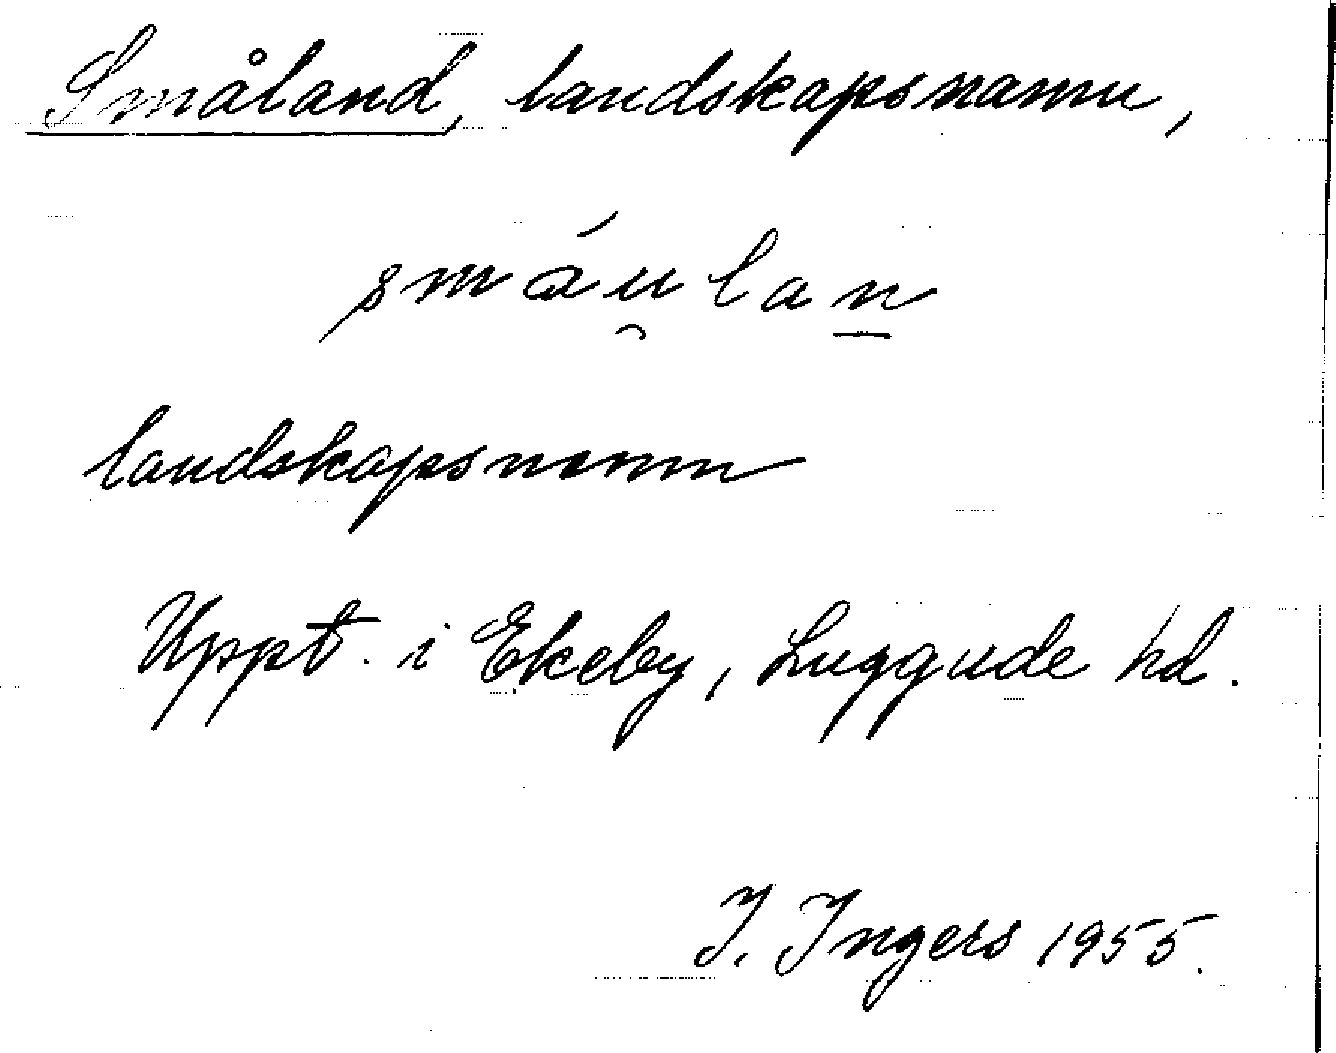 Småland, landskapsnamn,
smáu̯lan̲
landskapsnamn
Uppt. i Ekeby, Luggude hd.
I. Ingers 1955.